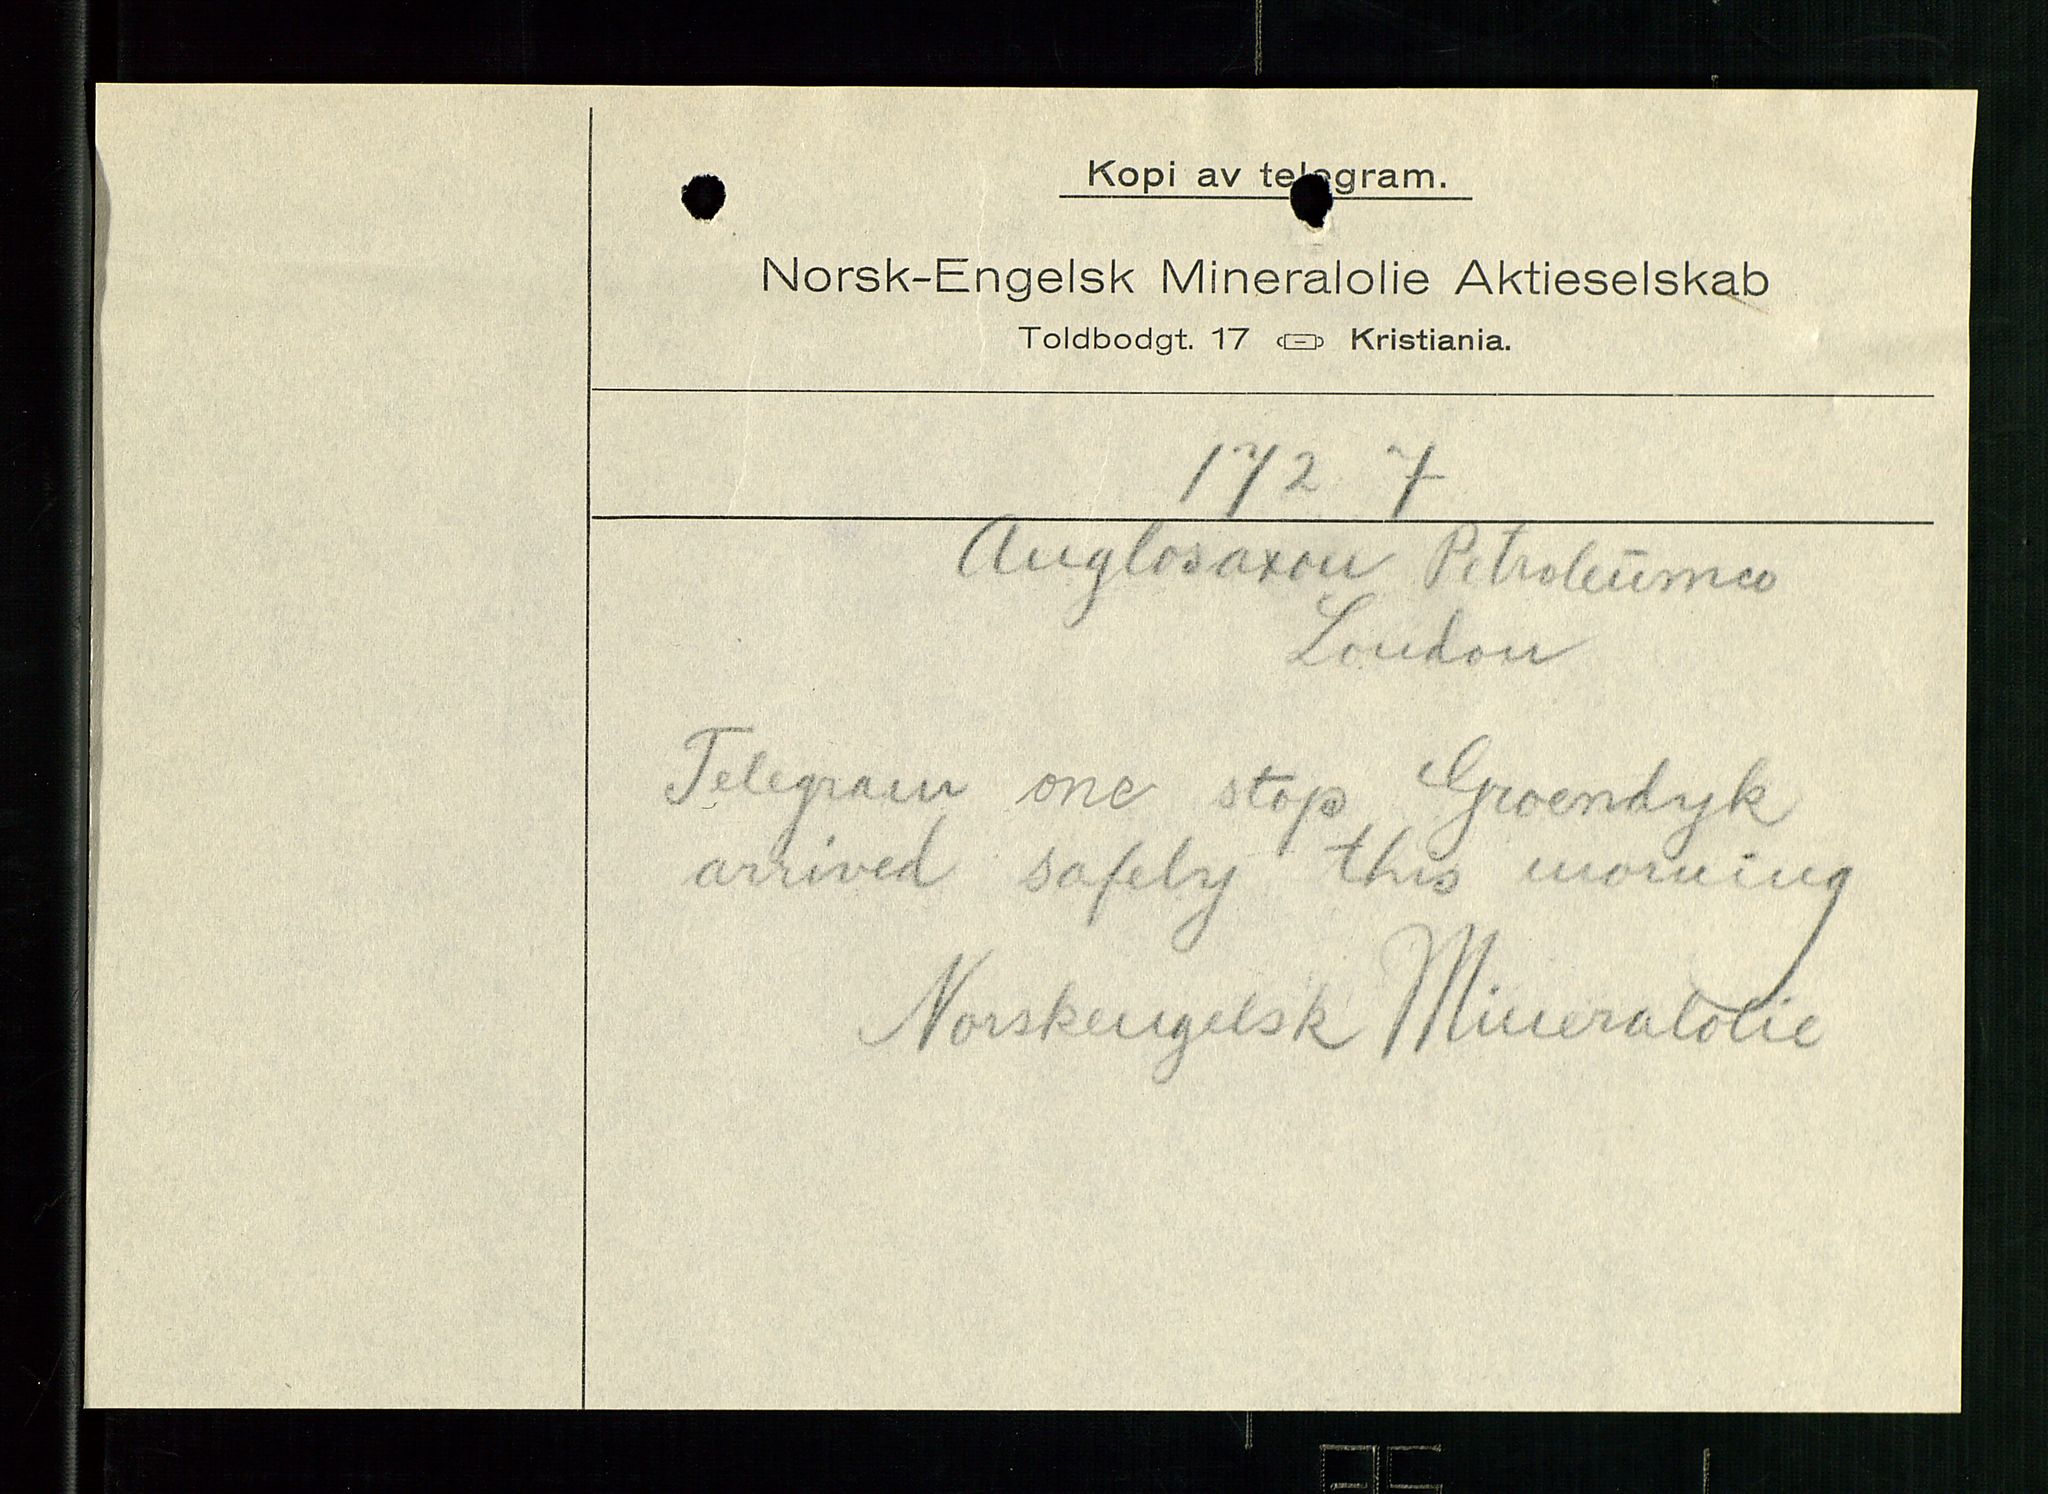 Kopi av telegram.
Norsk-Engelsk Mineralolie Aktieselskab
Toldbodgt. 17 Kristiania.
172 7
Anglosaxon Petroleumco
London
Telegram one stop Groendyk
arrived safely this morning
Norskengelsk Mineralolie